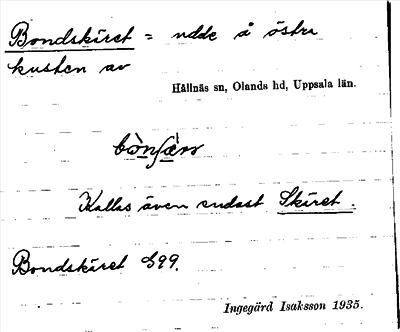 Bondskäret = udde å östra
kusten av
Hållnäs sn, Olands hd, Uppsala län.
Kallas även endast Skäret.
Bondskäret S99.
Ingegärd Isaksson 1935.